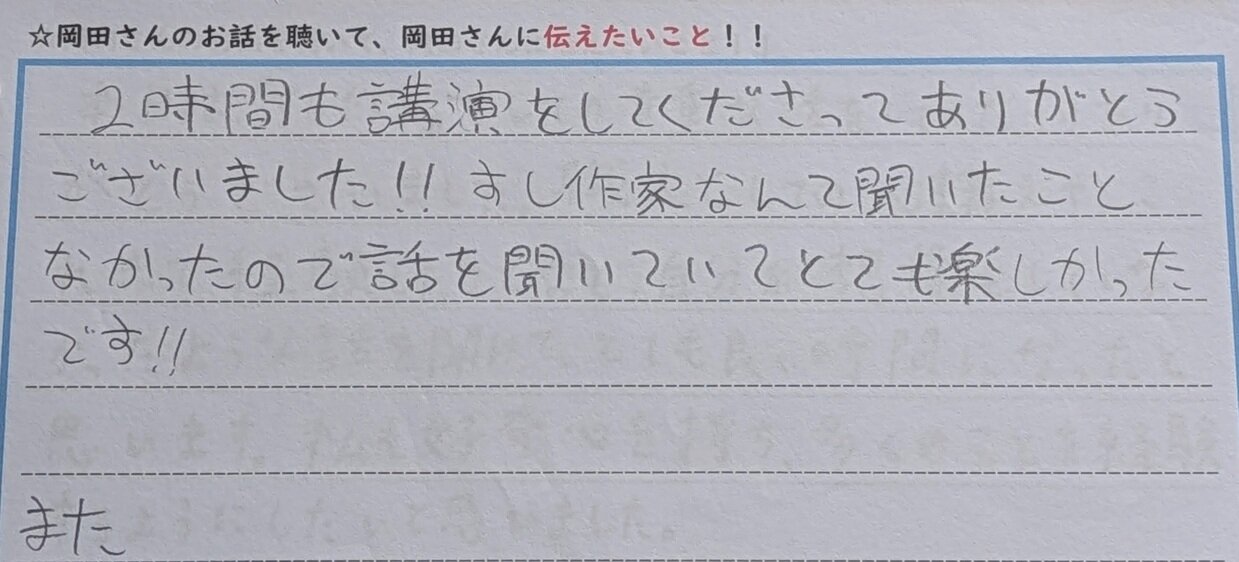 ☆岡田さんのお話を聴いて、岡田さんに伝えたいこと！！
2時間も講演をしてくださってありがとう
ございました!! すし作家なんて聞いたこと
なかったので話を聞いていてとても楽しかった
です!!
また